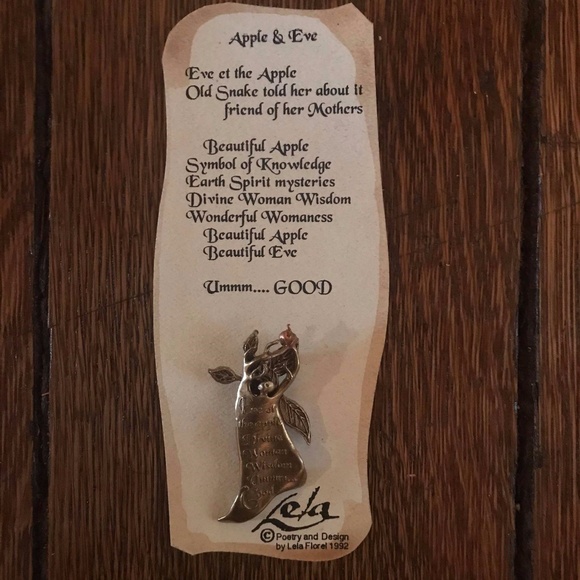 Apple & Eve
Eve et the Apple
Old Snake told her about it
friend of her Mothers
Beautiful Apple
Symbol of Knowledge
Earth Spirit mysteries
Divine Woman Wisdom
Wonderful Womaness
Beautiful Apple
Beautiful Eve
Ummm.... GOOD
the
Woman
Wisdom
Lela
© Poetry and Design
by Lela Florel 1992